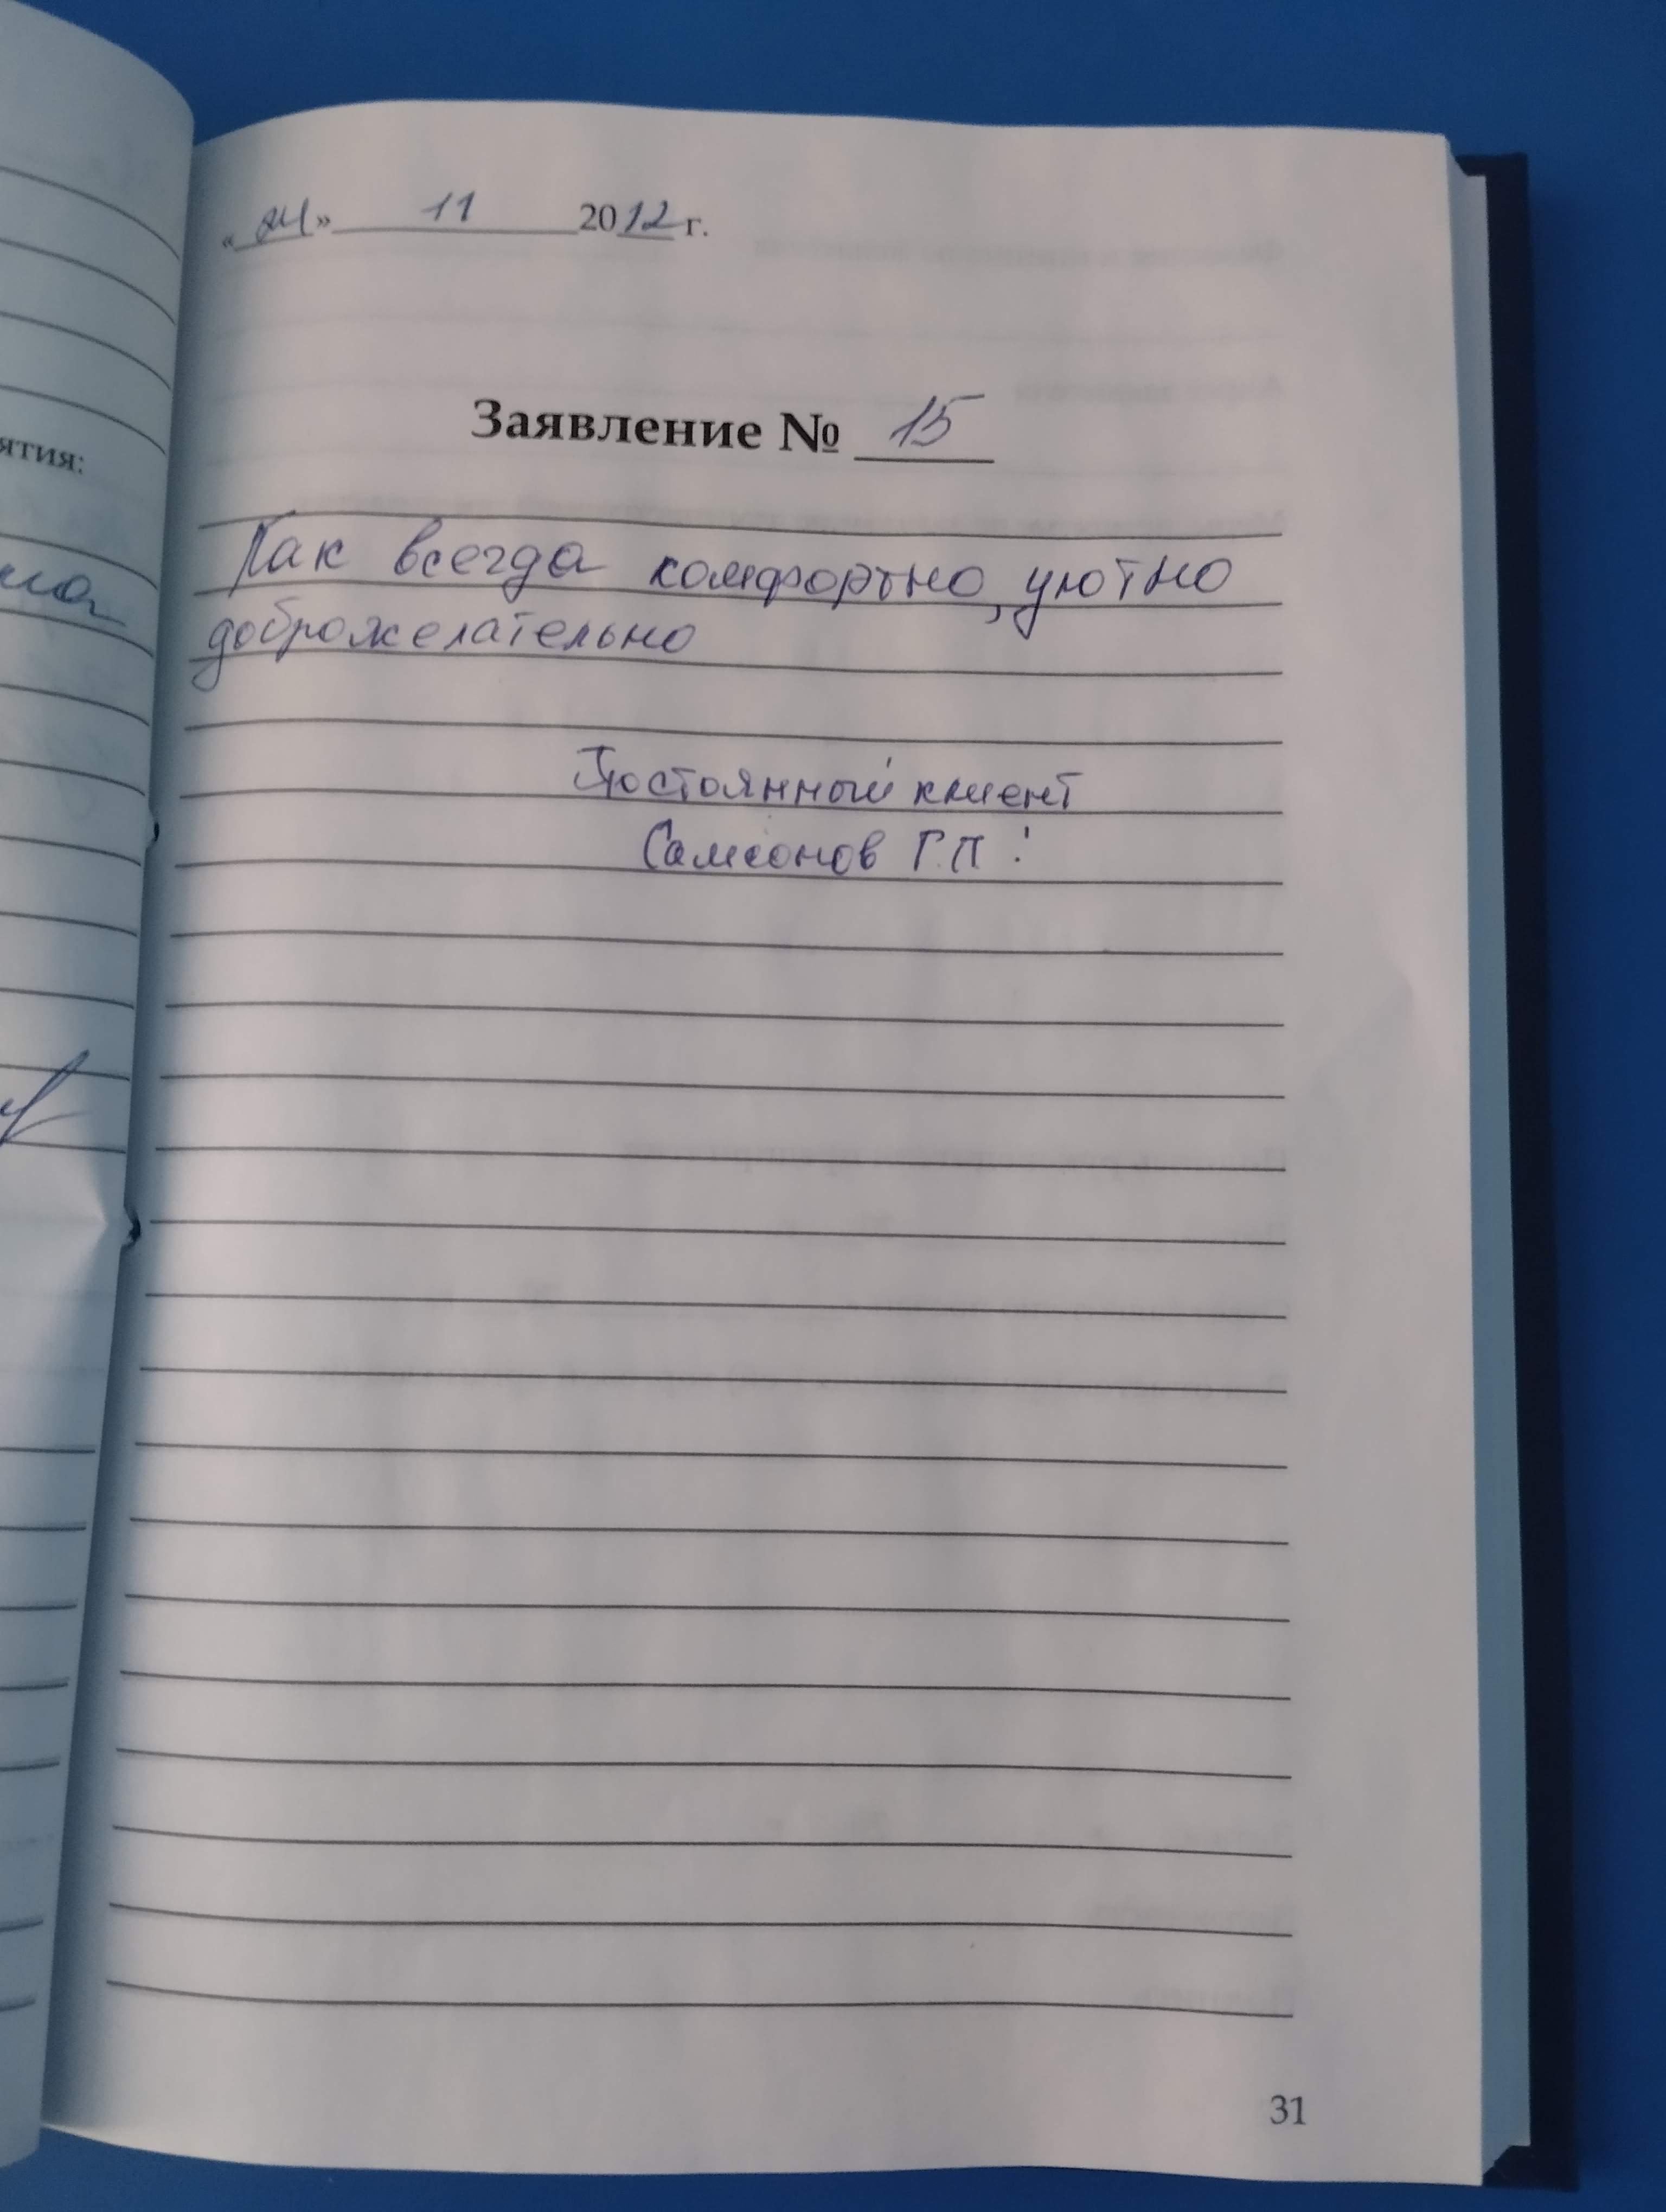 ятия:
« 24 » 11 2012 г.
Заявление № 15
Как всегда комфортно, уютно
доброжелательно
Постоянный клиент
Самсонов Г.П !
31